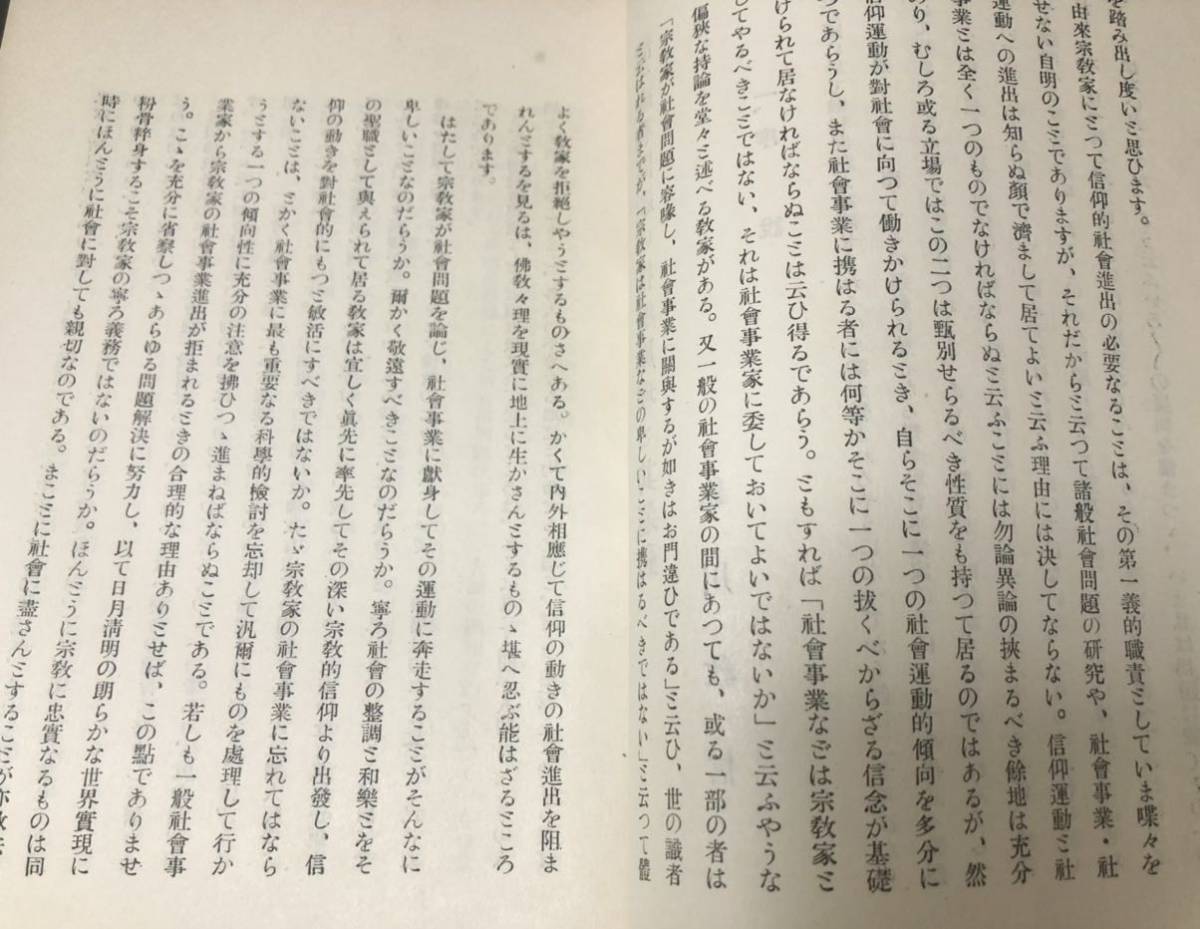 を踏み出し度いと思ひます。
由來宗敎家にとつて信仰的社會進出の必要なることは、その第一義的職責としていま喋々を
せない自明のことでありますが、それだから と云つて諸般社會問題の硏究や、社會事業・社
運動への進出は知らぬ顏で濟まして居てよいと云ふ理由には決してならない。信仰運動と社
事業とは全く一つのものでなければならぬと云ふことには勿論異論の挾まるべき餘地は充分
あり、むしろ或る立場ではこの二つは甄別せらるべき性質をも持つて居るのではあるが、然
信仰運動が對社會に向つて働きかけられるとき、自らそこに一つの社會運動的傾向を多分に
つであらうし、また社會事業に携はる者には何等かそこに一つの拔くべからざる信念が基礎
けられて居なければならぬことは云ひ得るであらう。ともすれば「社會事業などは宗敎家と
してやるべきことではない、それは社會事業家に委しておいてよいではないか」と云ふやうな
偏狹な持論を堂々と述べる敎家がある。又一般の社會事業家の間にあつても、或る一部の者は
「宗敎家が社會問題に容喙し、社會事業に關與するが如きはお門違ひである」と云ひ、世の識者
と云はれる者までが、「宗敎家は社會事業などの卑しいことに携はるべきではない」と云つて體
よく敎家を拒絕しやうとするものさへある。かくて內外相應じて信仰の動きの社會進出を阻ま
れんとするを見るは、佛敎々理を現實に地上に生かさんとするものゝ堪へ忍ぶ能はざるところ
であります。
はたして宗敎家が社會問題を論じ、社會事業に獻身してその運動に奔走することがそんなに
卑しいことなのだらうか。爾かく敬遠すべきことなのだらうか。寧ろ社會の整調と和樂とをそ
の聖職として與えられて居る敎家は宜しく眞先に率先してその深い宗敎的信仰より出發し、信
仰の動きを對社會的にもつと敏活にすべきではないか。たゞ宗敎家の社會事業に忘れてはなら
ないことは、とかく社會事業に最も重要なる科學的檢討を忘却して汎爾にものを處理して行か
うとする一つの傾向性に充分の注意を拂ひつゝ進まねばならぬことである。若しも一般社會事
業家から宗敎家の社會事業進出が拒まれるときの合理的な理由ありとせば、この點でありませ
う。こゝを充分に省察しつゝあらゆる問題解決に努力し、以て日月淸明の朗らかな世界實現に
粉骨粹身するこそ宗敎家の寧ろ義務ではないのだらうか。ほんとうに宗敎に忠實なるものは同
時にほんとうに社會に對しても親切なのである。まことに社會に盡さんとすることが亦